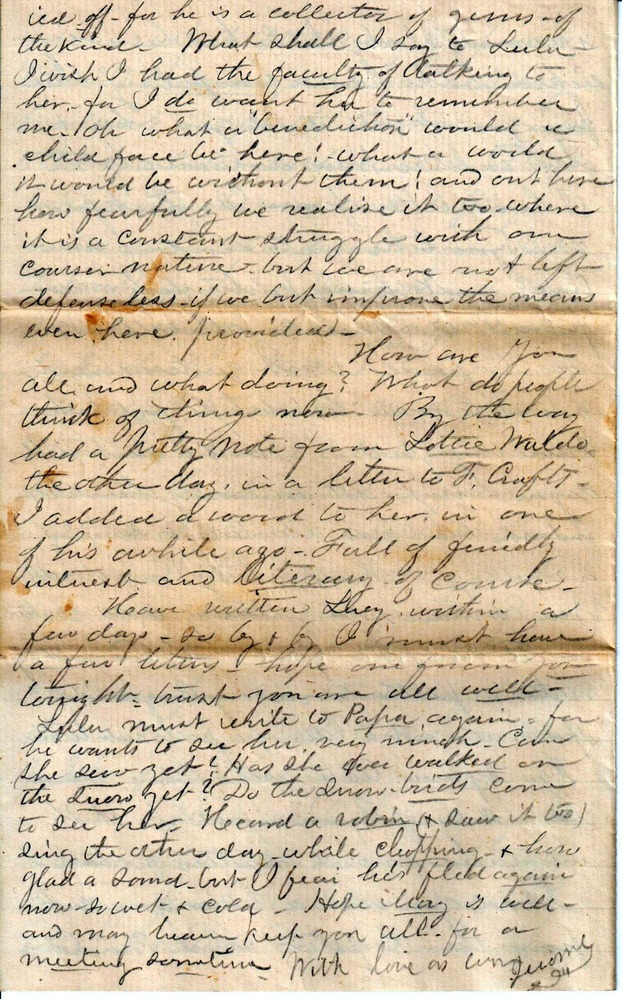 ied off - for he is a collector of gems of
the kind - What shall I say to Lulu -
I wish I had the faculty of talking to
her, for I do want her to remember
me. Oh what a "benediction" would a
child face be here! - what a world
it would be without them! and out here
how fearfully we realise it too, where
it is a constant struggle with our
courser nature - but we are not left
defenseless - if we but improve the means
even here, provided -
How are you
all, and what doing? What do people
think of things now - By the way
had a pretty note from Lottie Waldo,
the other day, in a letter to F. Crafts -
I added a word to her, in one
of his awhile ago - Full of
interest and literary of course -
Have written Lucy within a
few days - so by & by I must have
a few letters - hope one from you
tonight - trust you are all well -
Lulu must write to Papa again - for
he wants to see her, very much - Can
she sew yet? Has she ever walked on
the snow yet? Do the snow-birds come
to see her. Heard a robin (& saw it too)
sing the other day - while chopping - & how
glad a sound - but I fear has fled again
now - so wet & cold - Hope is well -
and may heaven keep you all - for a
meeting sometime With love as ever
Jerome